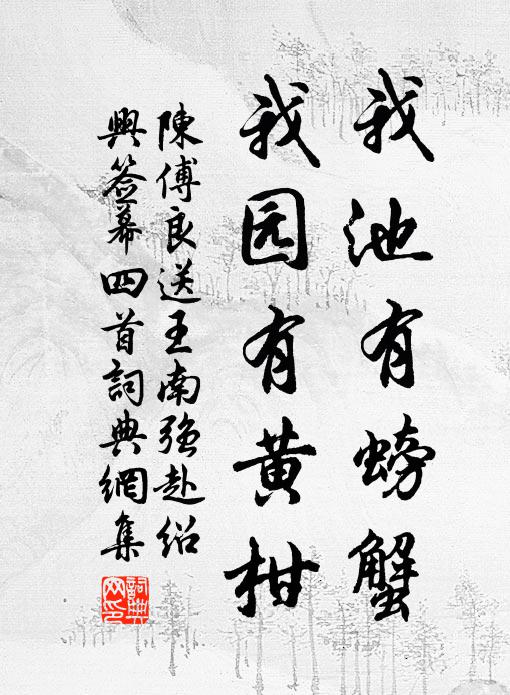 我池有螃蟹
我园有黄柑
陳傅良送王南强赴绍
興签幕四首詞典網集